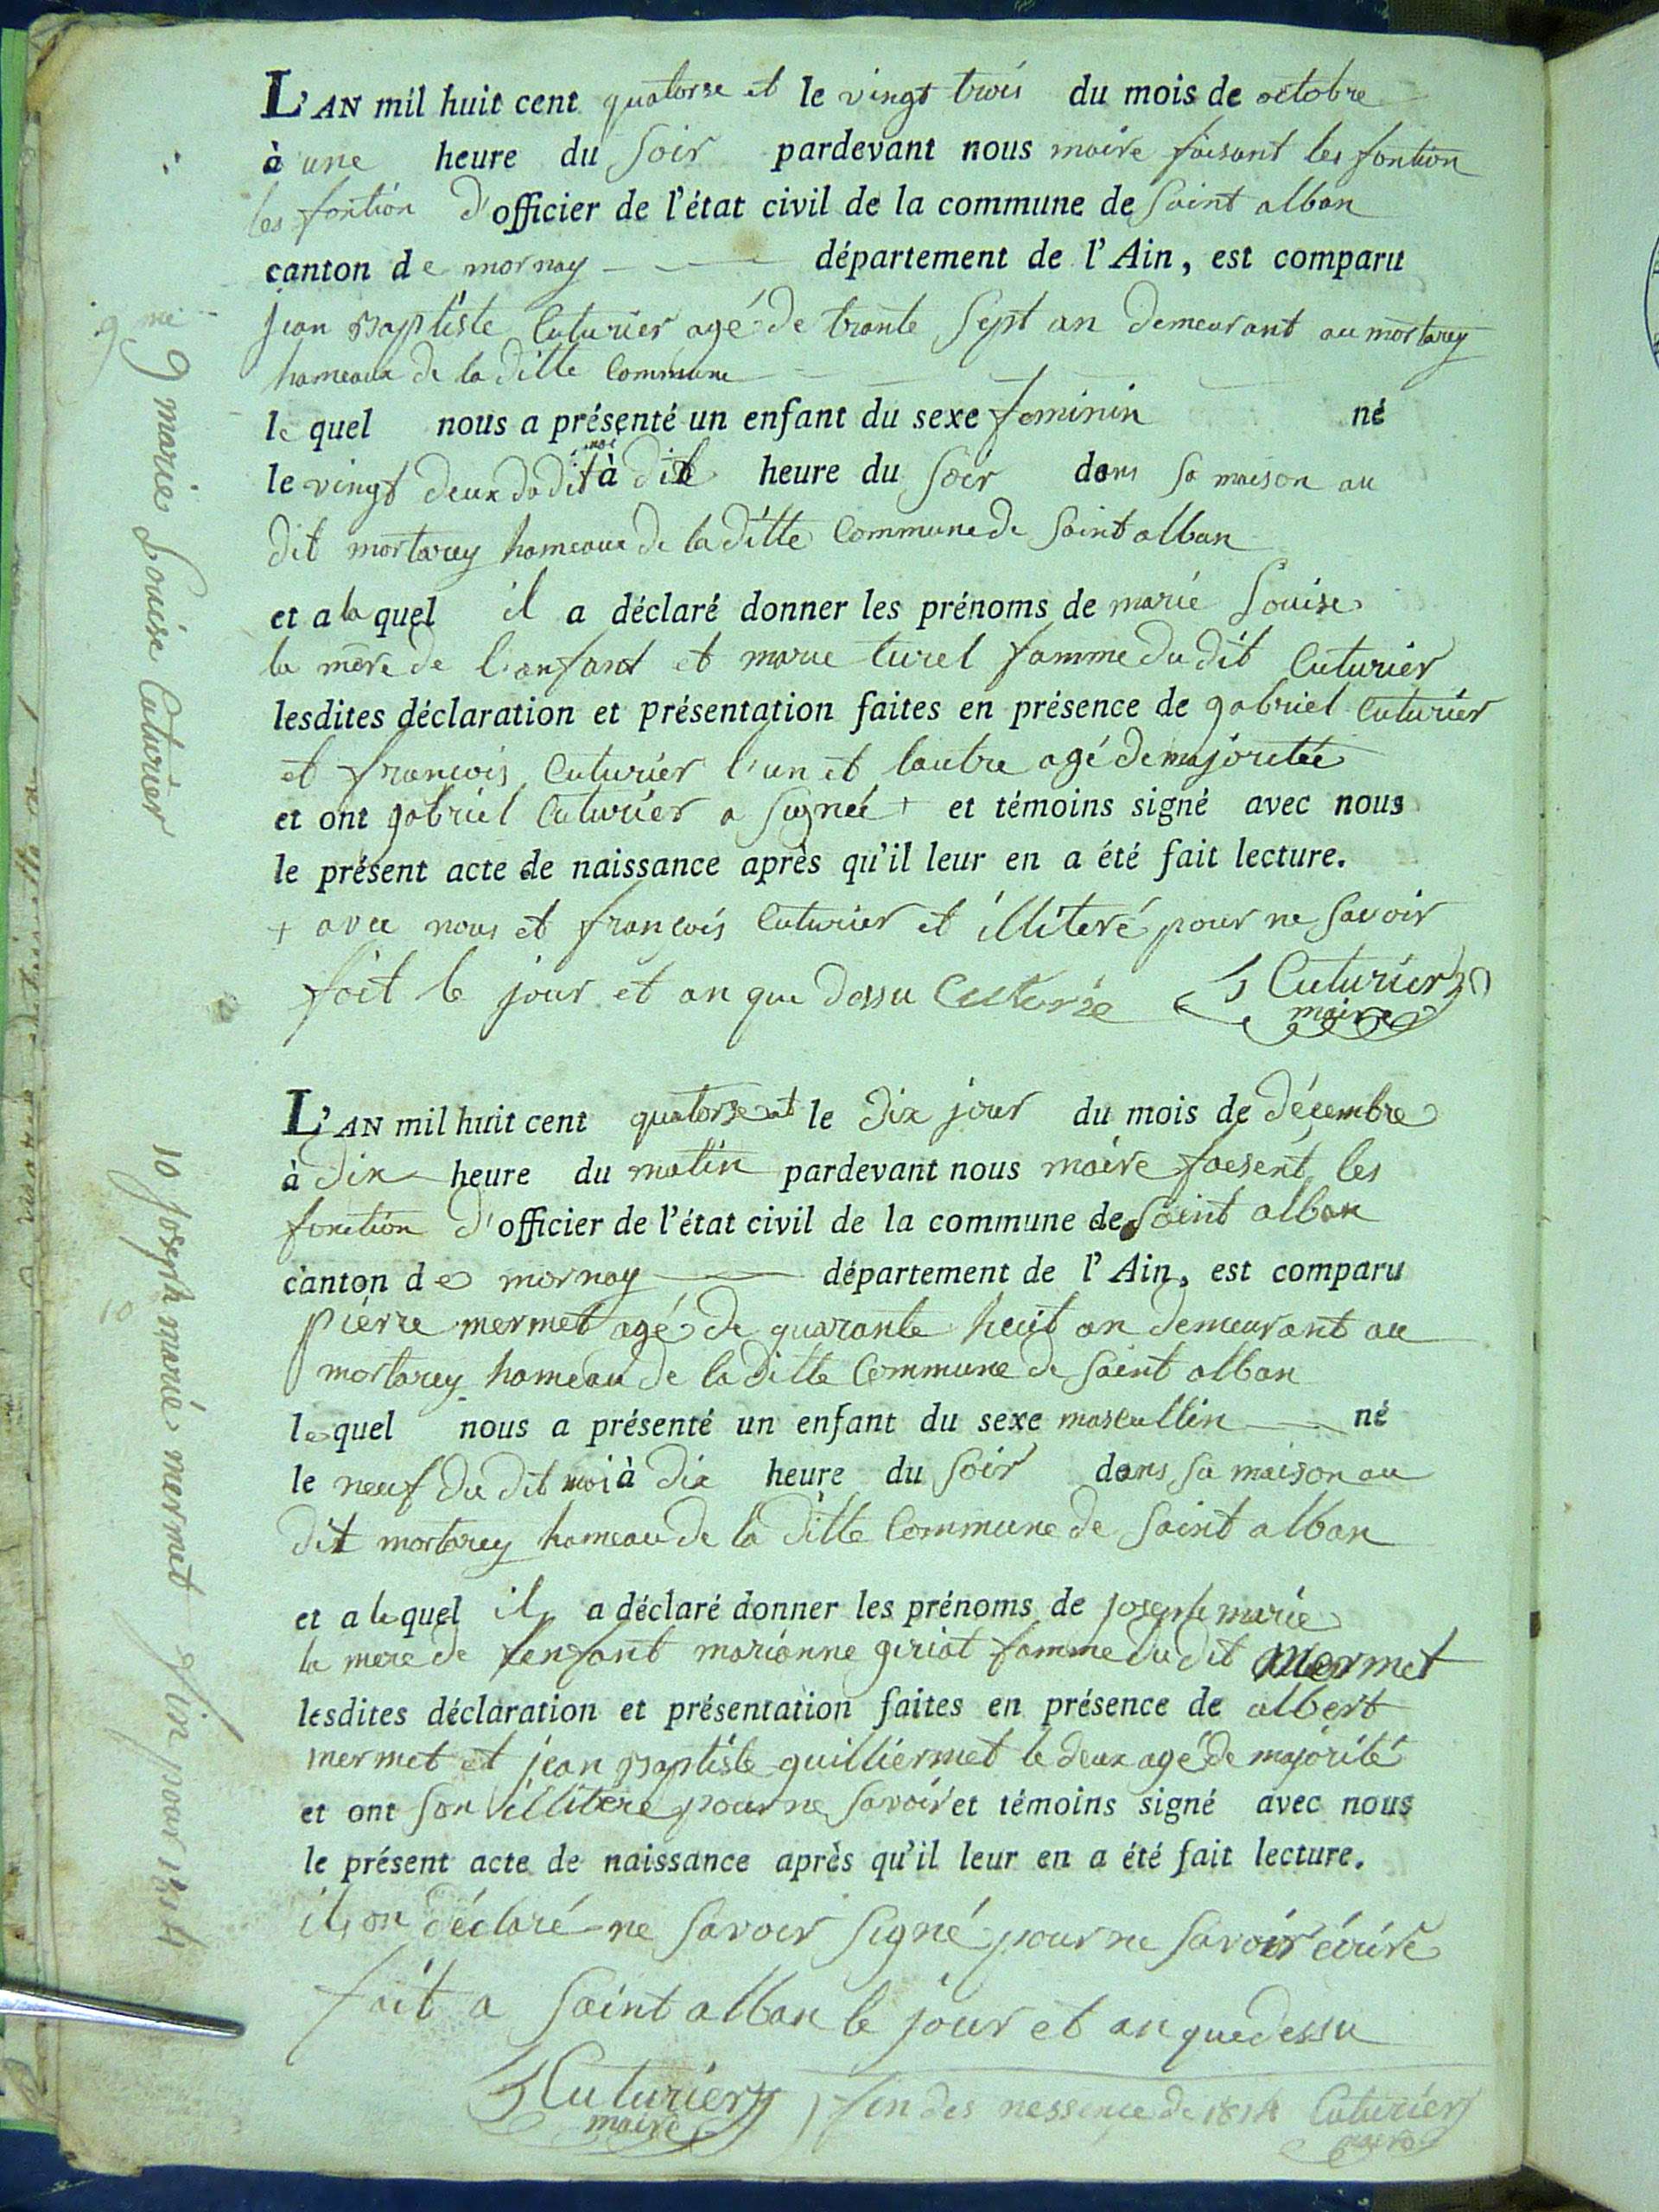 L'AN mil huit cent quatorse et le vingt trois du mois de octobre
à une heure du soir pardevant nous maire faisant les fontion
les fontion d'officier de l'état civil de la commune de saint alban
canton de mornay département de l'Ain, est comparu
jean Baptiste Cuturier agé de trante sept an demeurant au mortarey
hameaux de la ditte Commune
le quel nous a présenté un enfant du sexe feminin né
le vingt deux dudit à heure du soir dans sa maison au
dit mortarey hameaux de la ditte Commune de saint alban
et a la quel il a déclaré donner les prénoms de marie Louise
la mère de l'anfant et marie turel famme du dit Cuturier
lesdites déclaration et présentation faites en présence de gabriel Cuturier
et francois Cuturier l'un et lautre agé de majoritée
et ont gabriel Cuturier a signée + et témoins signé avec nous
le présent acte de naissance après qu'il leur en a été fait lecture.
+ avec nous et francois Cuturier et illiteré pour ne savoir
fait le jour et an que dessu Cuturié Cuturier
maire
9 marie Louise Cuturier
9me
L'AN mil huit cent quatorse et le dix jour du mois de décembre
à dix heure du matin pardevant nous maire faesent les
fonction d'officier de l'état civil de la commune de saint alban
canton de mornay département de l'Ain, est comparu
pierre mermet agé de quarante huit an demeurant au
mortarey hameau de la ditte Commune de saint alban
le quel nous a présenté un enfant du sexe mascullin né
le neuf du dit moi à dix heure du soir dans sa maison au
dit mortarey hameau de la ditte Commune de saint alban
et a le quel il a déclaré donner les prénoms de joseph marie
la mere de l'enfant marianne giriat famme du dit Mermet
lesdites déclaration et présentation faites en présence de albert
mermet et jean Baptiste guilliermet le deux agé de majorité
et ont son illitere pour ne savoir et témoins signé avec nous
le présent acte de naissance après qu'il leur en a été fait lecture.
ils on déclaré ne savoir signé pour ne savoir écrire
fait a saint alban le jour et an que dessu
Cuturier
maire
fin des nessence de 1814 Cuturier
maire
10 joseph marie mermet fin pour 1814
10